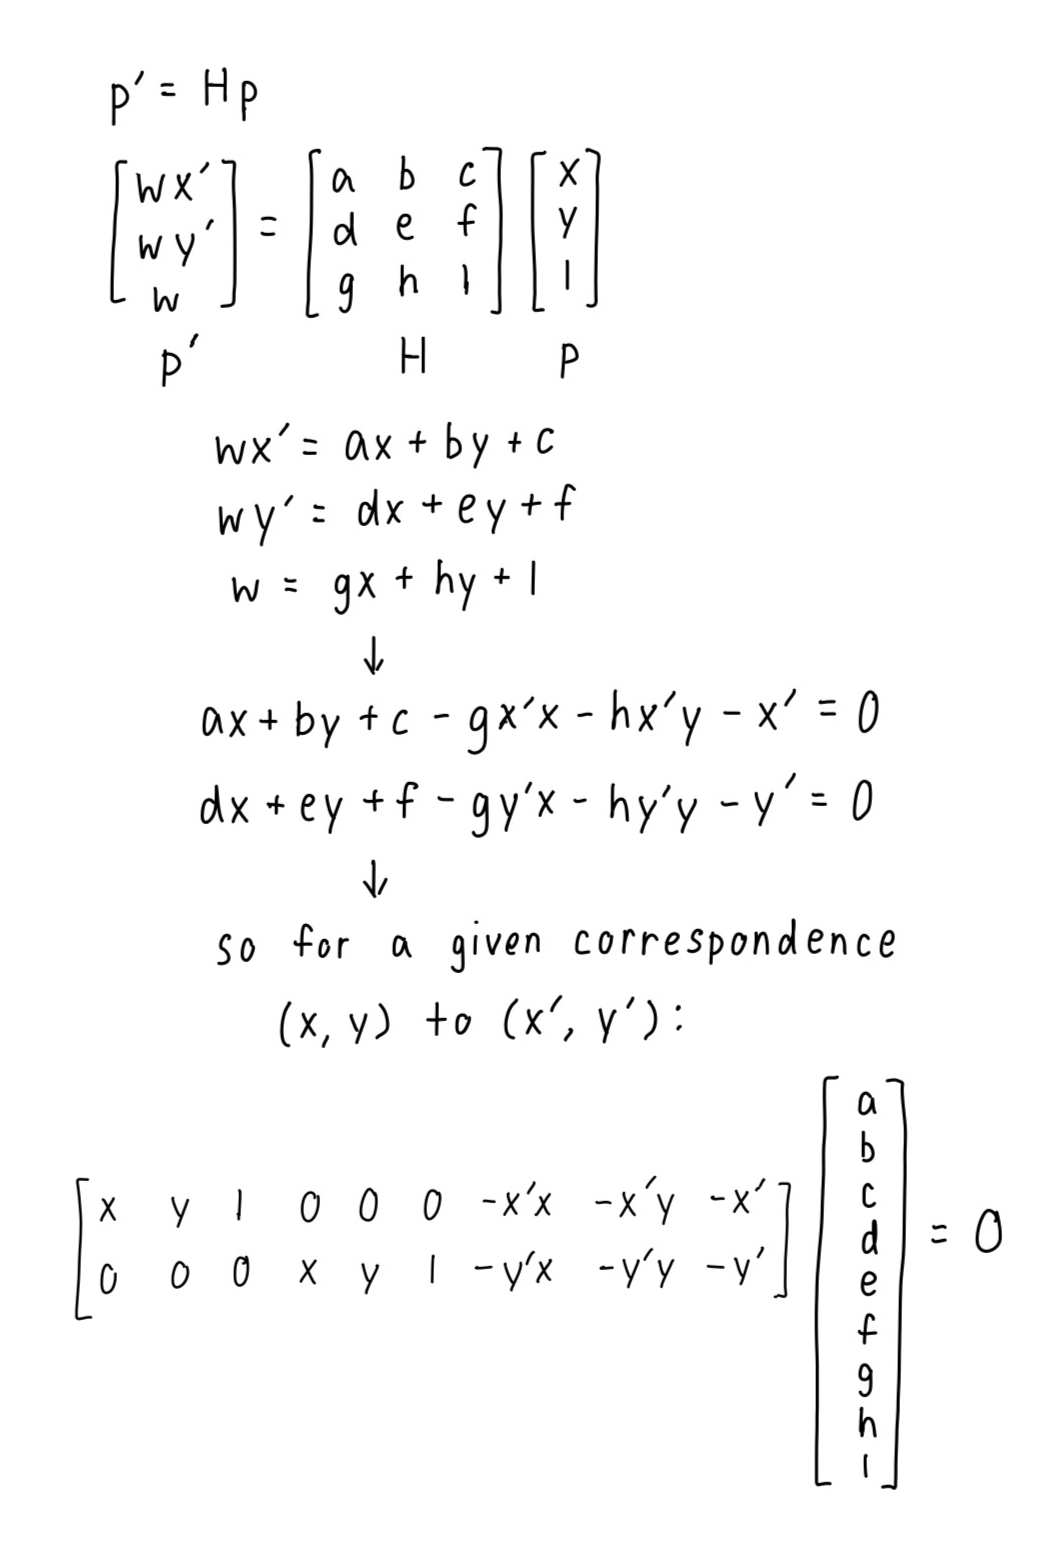 p′ = Hp
[wx′] = [a b c] [x]
[wy′] [d e f] [y]
[w] [g h 1] [1]
p′ H p
wx′ = ax + by + c
wy′ = dx + ey + f
w = gx + hy + 1
↓
ax + by + c - gx′x - hx′y - x′ = 0
dx + ey + f - gy′x - hy′y - y′ = 0
↓
so for a given correspondence
(x, y) to (x′, y′):
[x y 1 0 0 0 -x′x -x′y -x′]
[0 0 0 x y 1 -y′x -y′y -y′]
[a
b
c
d
e
f
g
h
1] = 0